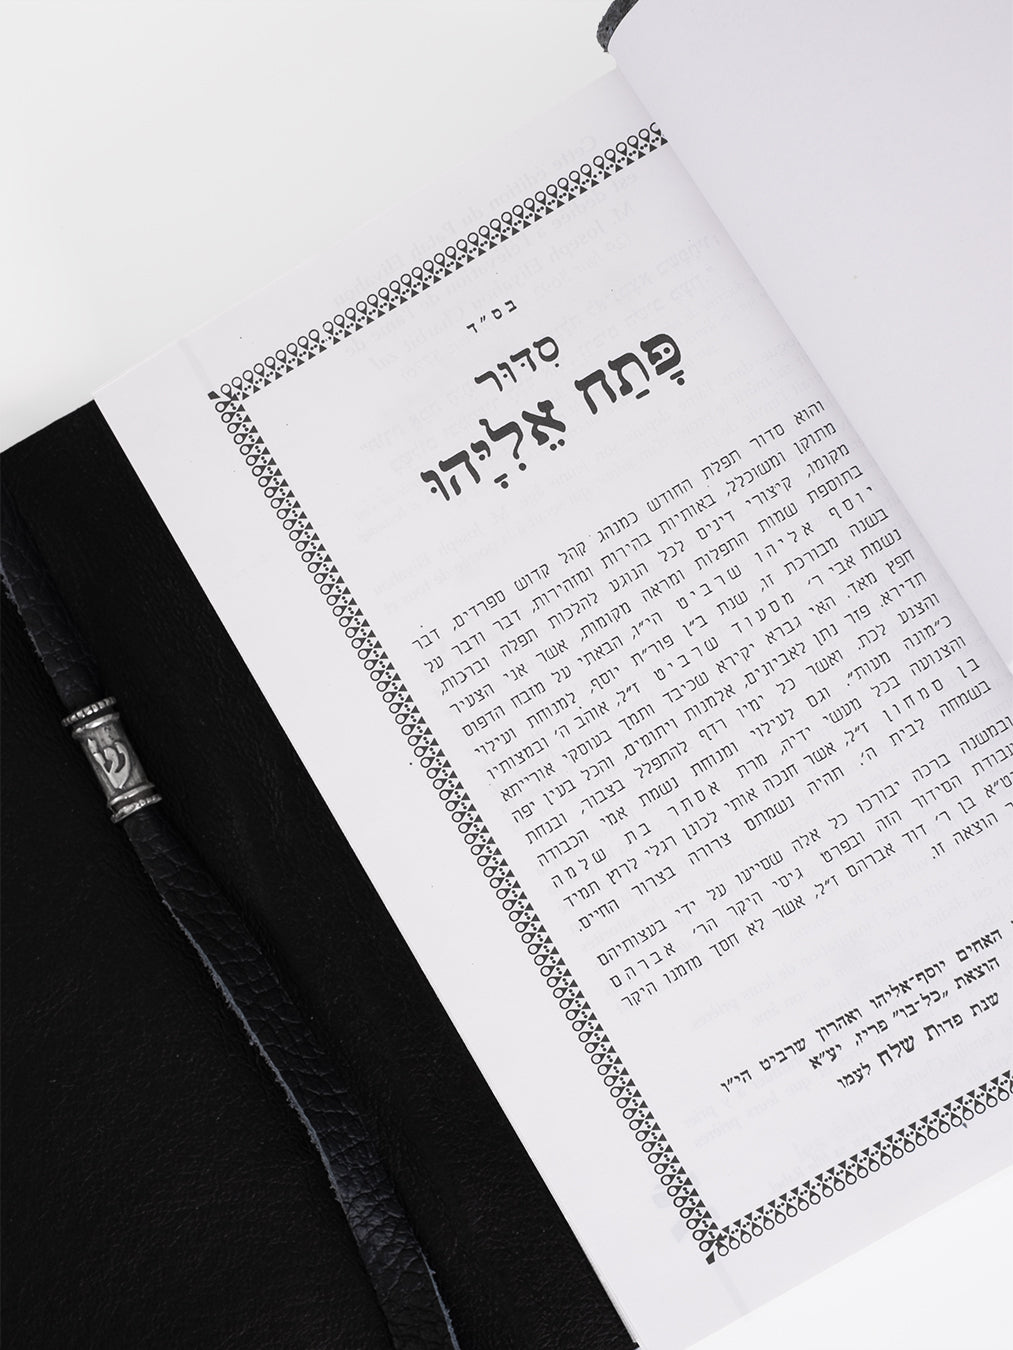 בס״ד
סִדּוּר
פָּתַח אֵלִיָּהוּ
והוא סדור תפלת החודש כמנהג קהל קדוש ספרדים, דבר
מתוקן ומשוכלל, באותיות בהירות ומזהירות, דבר ודבר על
מקומו, קיצורי דינים לכל הנוגע להלכות תפלה וברכות,
בתוספת שמות התפלות ומראה מקומות, אשר אני הצעיר
יוסף אליהו שרביט הי״ו, הבאתי על מזבח הדפוס
בשנה מבורכת זו, שנת ב״ן פור״ת יוסף, למנוחת ועילוי
נשמת אבי ר׳ מסעוד שרביט ז״ל, אוהב ה׳ ובמצותיו
חפץ מאד. האי גברא יקירא שכיבד ותמד בעוסקי אורייתא
תדירא, פזר נתן לאביונים, אלמנות ויתומים, והכל בעין יפה
והצנע לכת, ואשר כל ימיו רדף להתפלל בצבור, ובנחת
כ״מונה מעות״. וגם לעילוי ומנוחת נשמת אמי הכבודה
והצנועה בכל מעשי ידיה, מרת אסתר בת שלמה
בן סמחון ז״ל, אשר חנכה אותי לכונן רגלי לרוץ תמיד
בשמחה לבית ה׳. תהיה נשמתם צרורה בצרור החיים.
ובמשנה ברכה יבורכו כל אלה שסייעו על ידי בעצותיהם
עבודת הסידור הזה ובפרט גיסי היקר הר׳ אברהם
בן ר׳ דוד אברהם ז״ל, אשר לא חסך מזמנו היקר
הוצאה זו.
האחים יוסף-אליהו ואהרון שרביט הי״ו
הוצאת ״כל-בו״ פריז, יע״א
שנת פדות שלח לעמו
ש